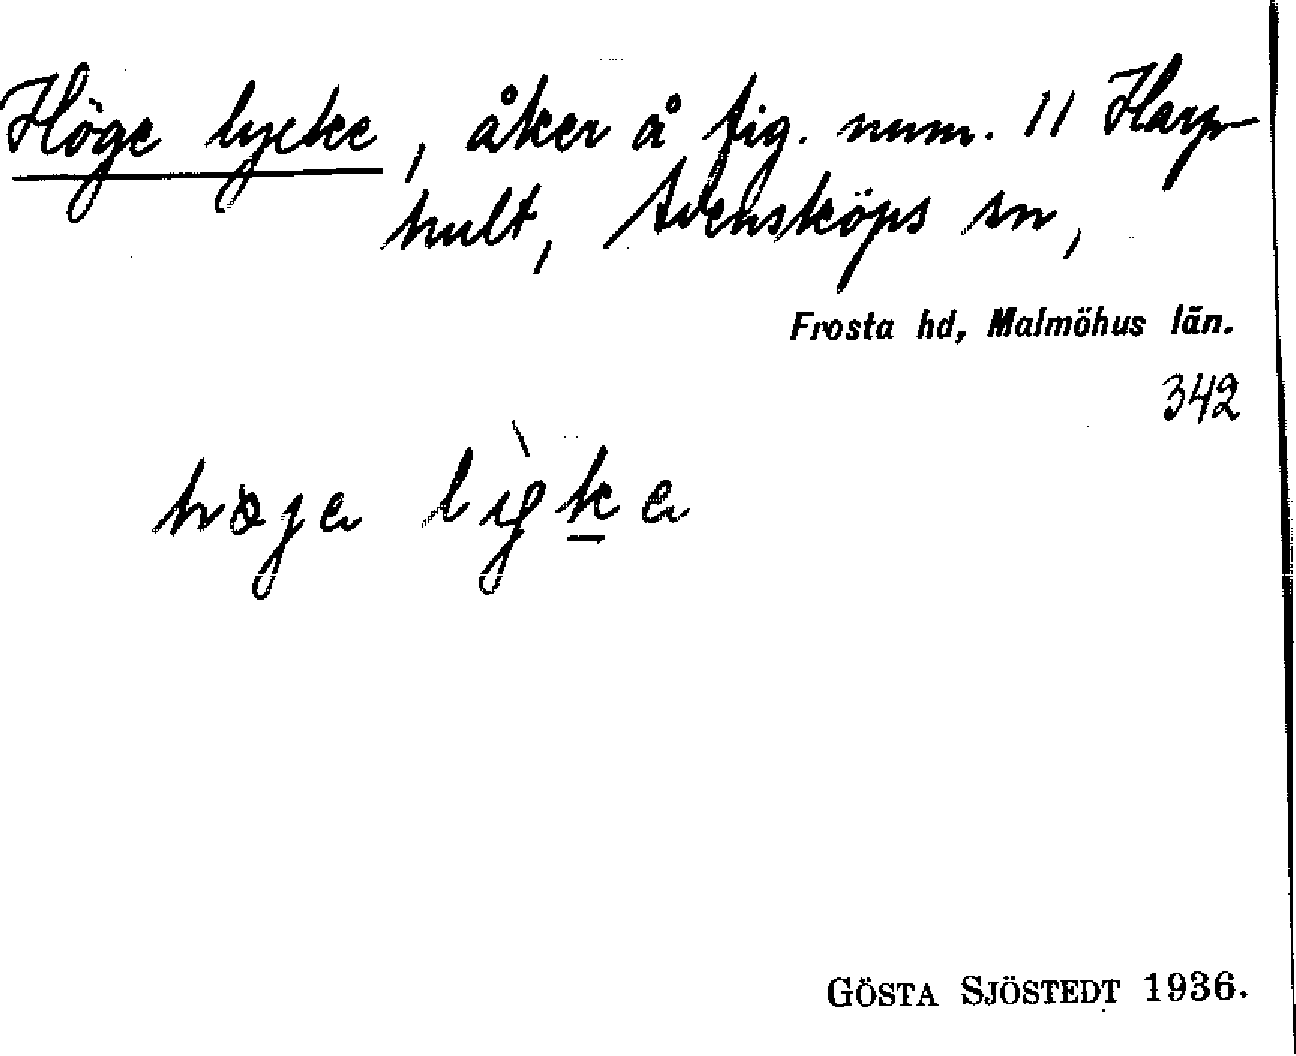 Höge lycke, åker å fig. num. 11 Harp-
hult, Svensköps sn,
Frosta hd, Malmöhus län.
342
högɐ lỳkɐ
GÖSTA SJÖSTEDT 1936.